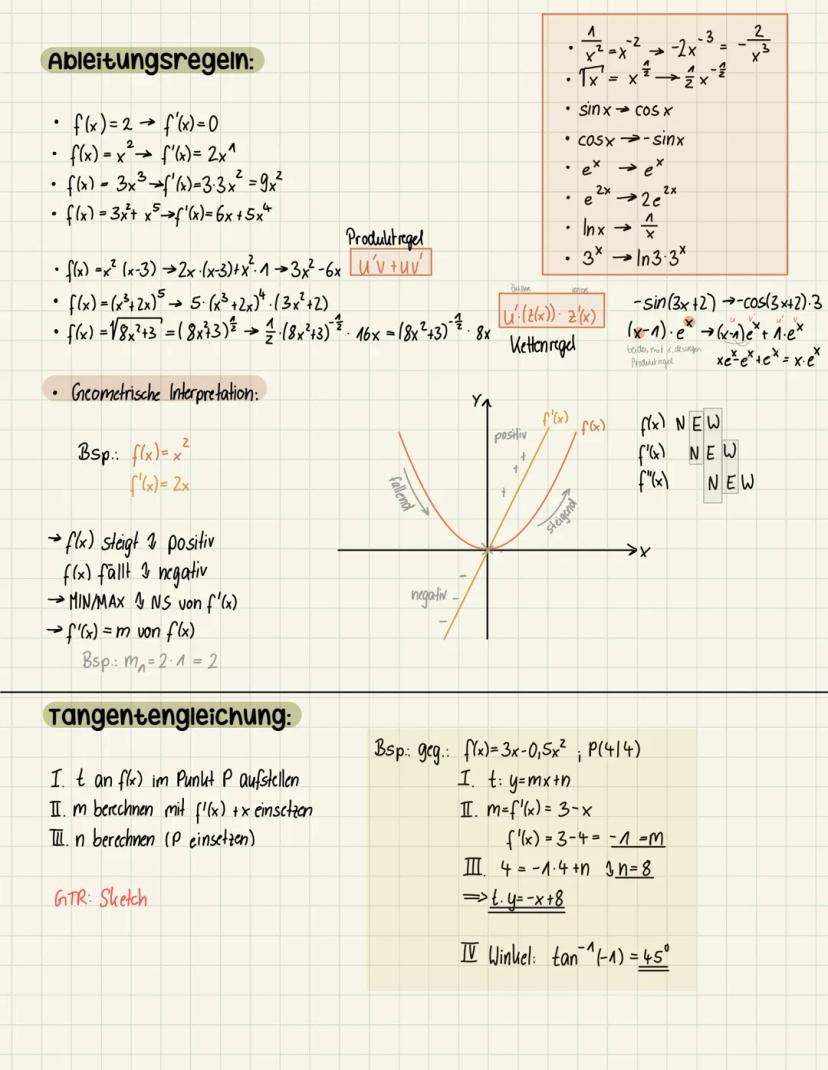 Ableitungsregeln:
• f(x) = 2 → f'(x) = 0
• f(x) = x² → f'(x) = 2x¹
• f(x) = 3x³ → f'(x) = 3·3x² = 9x²
• f(x) = 3x² + x⁵ → f'(x) = 6x + 5x⁴
Produktregel
• f(x) = x² (x-3) → 2x·(x-3)+x²·1 → 3x²-6x
u'v + uv'
• f(x) = (x³+2x)⁵ → 5·(x³+2x)⁴·(3x²+2)
• f(x) = √(8x²+3) = (8x²+3)^½ → ½·(8x²+3)^-½ · 16x = (8x²+3)^-½ · 8x
u'·(z(x))· z'(x)
Kettenregel
• 1/x² = x⁻² → -2x⁻³ = -2/x³
• √x = x^½ → ½x^-½
• sinx → cosx
• cosx → -sinx
• eˣ → eˣ
• e²ˣ → 2e²ˣ
• lnx → 1/x
• 3ˣ → ln3·3ˣ
-sin(3x+2) → -cos(3x+2)·3
u v' u' v
(x-1)·eˣ → (x-1)eˣ + 1·eˣ
beides mit x, deswegen
Produktregel
xeˣ-eˣ+eˣ = x·eˣ
• Geometrische Interpretation:
Bsp.: f(x) = x²
f'(x) = 2x
→ f(x) steigt ⇅ positiv
f(x) fällt ⇅ negativ
→ MIN/MAX ⇅ NS von f'(x)
→ f'(x) = m von f(x)
Bsp.: m₁ = 2·1 = 2
Y
f'(x)
f(x)
positiv
+
+
+
fallend
steigend
X
negativ
-
-
-
f(x) N E W
f'(x) N E W
f''(x) N E W
Tangentengleichung:
I. t an f(x) im Punkt P aufstellen
II. m berechnen mit f'(x) + x einsetzen
III. n berechnen (P einsetzen)
GTR: Sketch
Bsp.: geg.: f(x) = 3x-0,5x² ; P(4|4)
I. t: y=mx+n
II. m=f'(x) = 3-x
f'(x) = 3-4 = -1 = m
III. 4 = -1·4+n ⇅ n=8
⇒ t. y=-x+8
IV Winkel: tan⁻¹(-1) = 45°